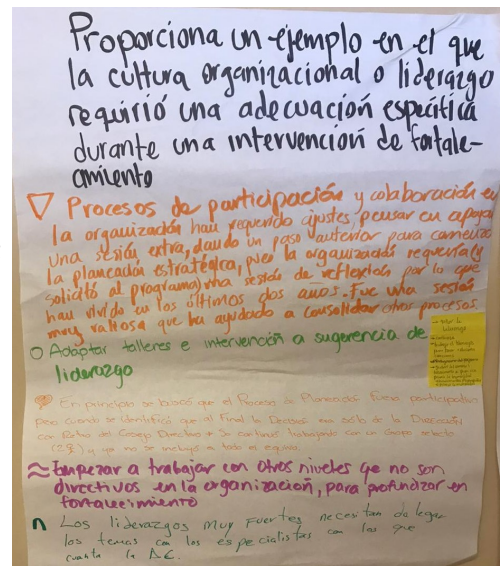 Proporciona un ejemplo en el que
la cultura organizacional o liderazgo
requirió una adecuación específica
durante una intervención de fortale-
cimiento
Procesos de participación y colaboración en
la organización han requerido ajustes, pensar en apoyar
una sesión extra, dando un paso anterior para comenzar
la planeación estratégica, pues la organización requería (y
solicitó al programa) una sesión de reflexión por lo que
han vivido en los últimos dos años. Fue una sesión
muy valiosa que ha ayudado a consolidar otros procesos.
Adaptar talleres e intervención a sugerencia de
liderazgo
En principio se buscó que el Proceso de Planeación fuera participativo
pero cuando se identificó que al final la Decisión era sólo de la Dirección
con del Consejo Directivo se continuó trabajando con un Grupo selecto
y ya no se incluyó a todo el equipo.
Empezar a trabajar con otros niveles qe no son
directivos en la organización, para profundizar en
fortalecimiento
Los liderazgos muy fuertes necesitan delegar
los temas con los especialistas con los que
cuenta la AC.